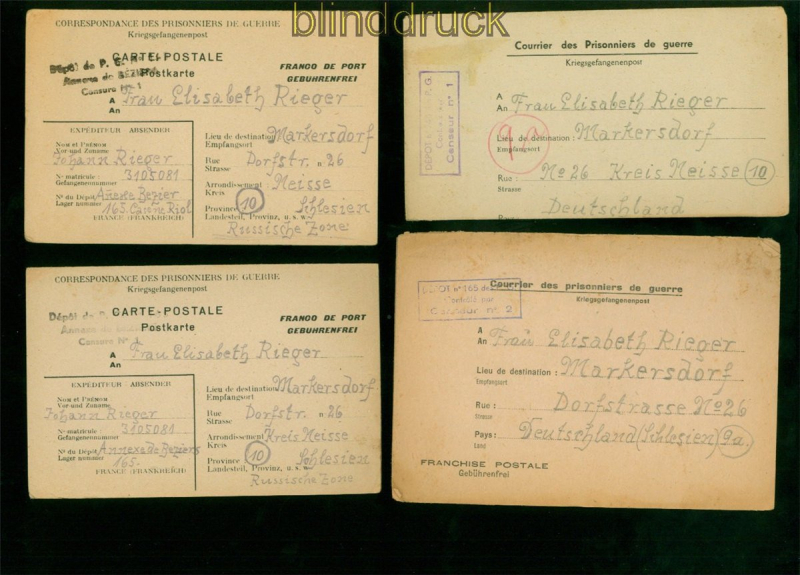 blinddruck
CORRESPONDANCE DES PRISONNIERS DE GUERRE
Kriegsgefangenenpost
CARTE-POSTALE
Postkarte
FRANCO DE PORT
GEBÜHRENFREI
Dépôt de P. G.
Annexe de BÉZIERS
Censure N° 1
A
An
Frau Elisabeth Rieger
EXPÉDITEUR ABSENDER
Nom et Prénom
Vor- und Zuname
Johann Rieger
N° matricule :
Gefangenennummer
3105081
N° du Dépôt
Lager nummer
165.
FRANCE (FRANKREICH)
Lieu de destination
Empfangsort
Markersdorf
Rue
Strasse
Dorfstr. n 26
Arrondissement :
Kreis
Neisse
Province
Landesteil, Provinz, u. s. w.
10 Schlesien
Russische Zone
CORRESPONDANCE DES PRISONNIERS DE GUERRE
Kriegsgefangenenpost
CARTE-POSTALE
Postkarte
FRANCO DE PORT
GEBÜHRENFREI
Dépôt de
Annexe de
Censure N° 1
A
An
Frau Elisabeth Rieger
EXPÉDITEUR ABSENDER
Nom et Prénom
Vor- und Zuname
Johann Rieger
N° matricule :
Gefangenennummer
3105081
N° du Dépôt
Lager nummer
Annexe de Beziers
165.
FRANCE (FRANKREICH)
Lieu de destination
Empfangsort
Markersdorf
Rue
Strasse
Dorfstr. n 26
Arrondissement
Kreis
Kreis Neisse
Province
Landesteil, Provinz, u. s. w.
10 Schlesien
Russische Zone
Courrier des Prisonniers de guerre
Kriegsgefangenenpost
DÉPÔT P. G.
Censeur n° 1
A
An
Frau Elisabeth Rieger
9a
Lieu de destination :
Empfangsort
Markersdorf
Rue :
Strasse
No 26 Kreis Neisse 10
Deutschland
Courrier des prisonniers de guerre
Kriegsgefangenenpost
DÉPÔT n° 165 de
Contrôlé par
Censeur n° 2
A
An
Frau Elisabeth Rieger
Lieu de destination :
Empfangsort
Markersdorf
Rue :
Strasse
Dorfstrasse No 26
Pays :
Land
Deutschland (Schlesien) 9a.
FRANCHISE POSTALE
Gebührenfrei